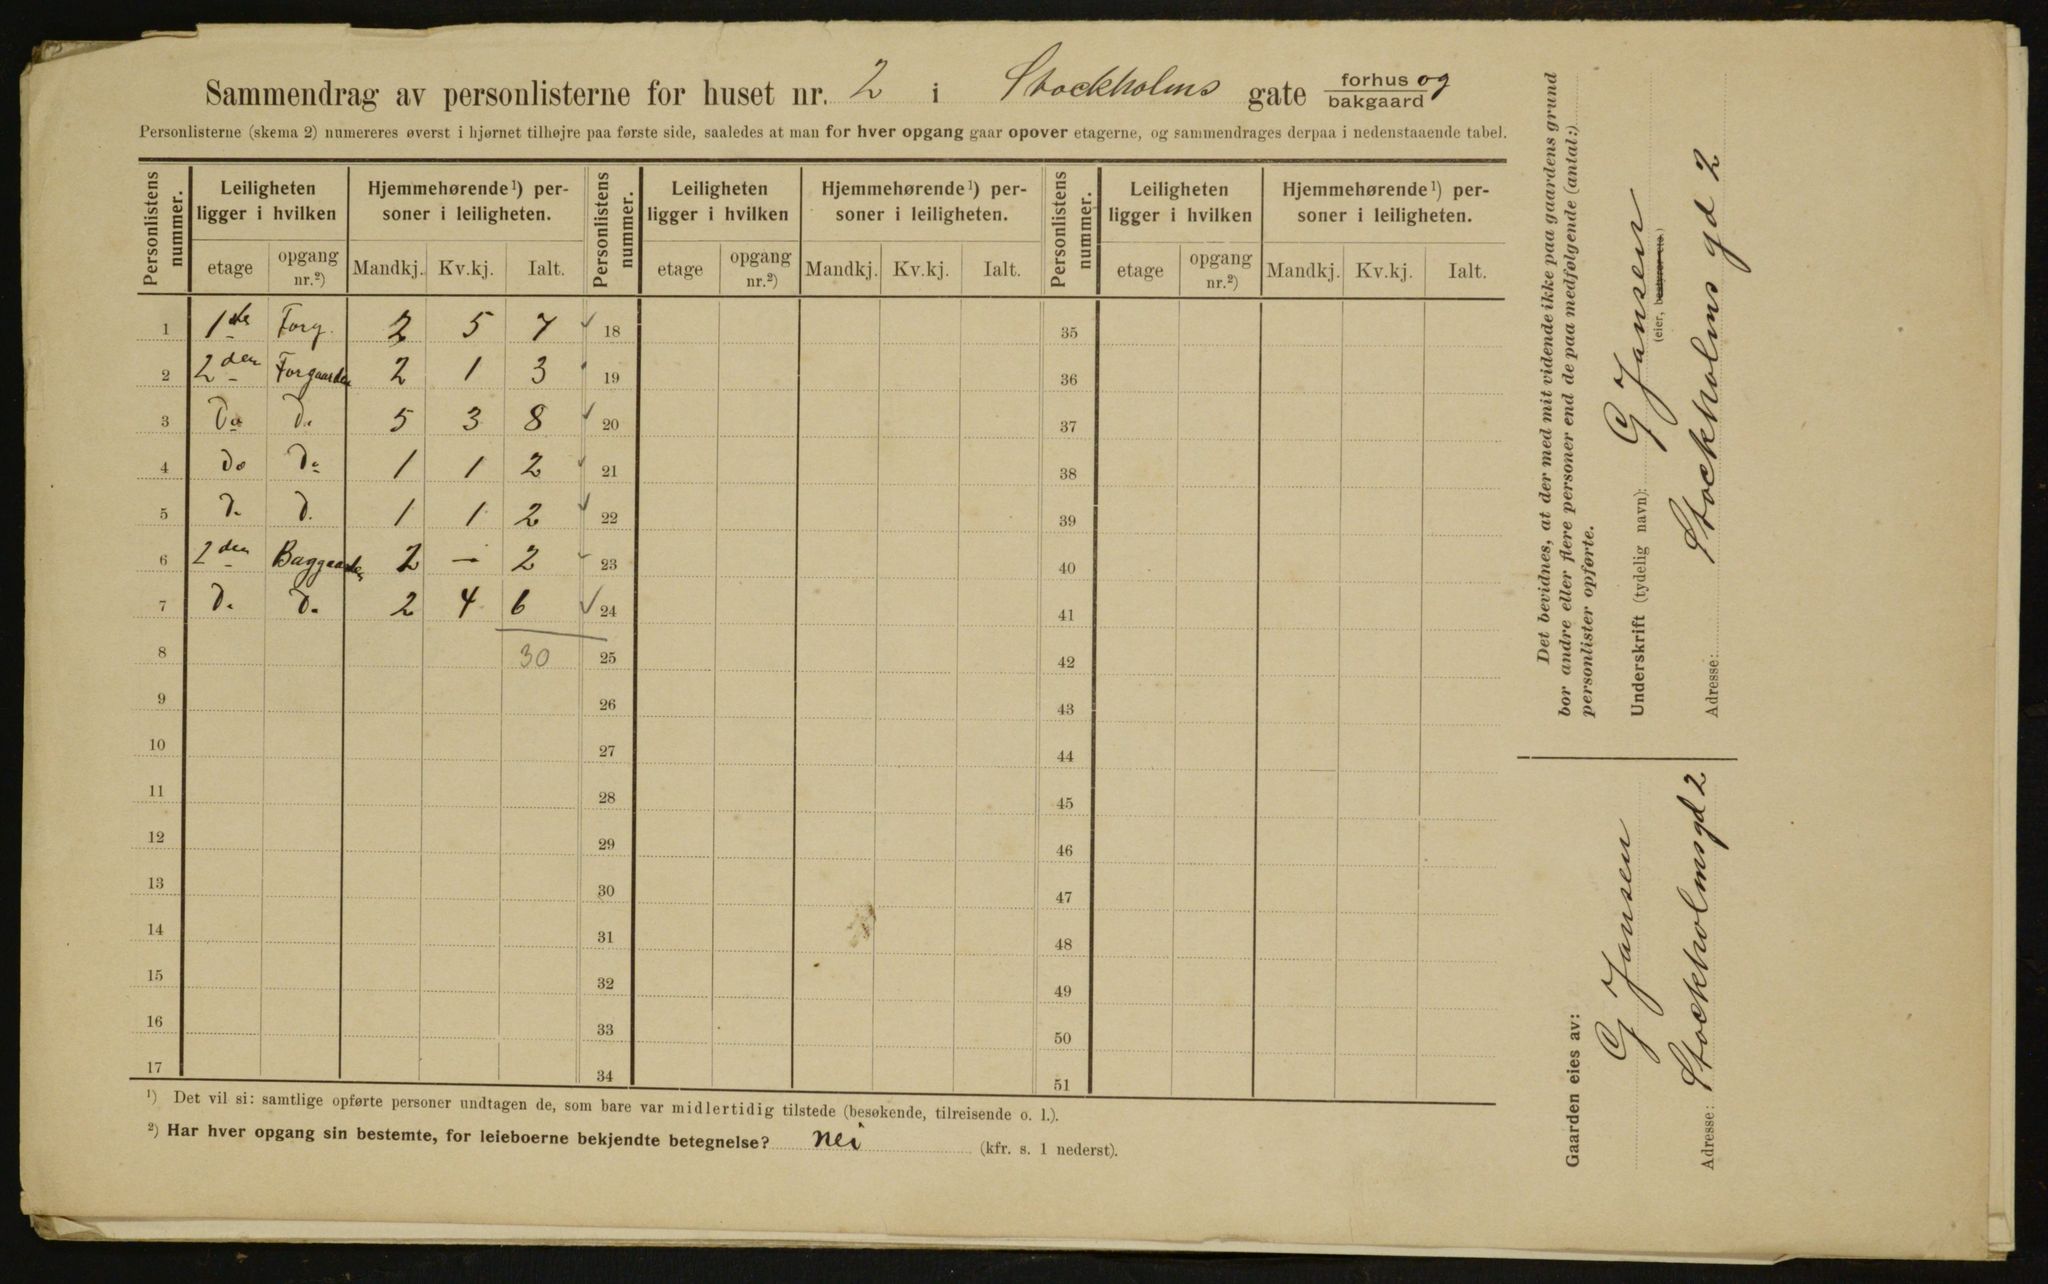 Sammendrag av personlisterne for huset nr. 2 i Stockholms gate forhus og bakgaard
Personlisterne (skema 2) numereres øverst i hjørnet tilhøjre paa første side, saaledes at man for hver opgang gaar opover etagerne, og sammendrages derpaa i nedenstaaende tabel.
Personlistens nummer. Leiligheten ligger i hvilken Hjemmehørende¹) personer i leiligheten. Personlistens nummer. Leiligheten ligger i hvilken Hjemmehørende¹) personer i leiligheten. Personlistens nummer. Leiligheten ligger i hvilken Hjemmehørende¹) personer i leiligheten.
etage opgang nr.²) Mandkj. Kv.kj. Ialt. etage opgang nr.²) Mandkj. Kv.kj. Ialt. etage opgang nr.²) Mandkj. Kv.kj. Ialt.
1 1ste Forg. 2 5 7 ✓ 18 35
2 2den Forgaarden 2 1 3 19 36
3 Do Do 5 3 8 ✓ 20 37
4 Do Do 1 1 2 ✓ 21 38
5 D. D. 1 1 2 ✓ 22 39
6 2den Baggaarden 2 — 2 ✓ 23 40
7 D. D. 2 4 6 ✓ 24 41
8 30 25 42
9 26 43
10 27 44
11 28 45
12 29 46
13 30 47
14 31 48
15 32 49
16 33 50
17 34 51
¹) Det vil si: samtlige opførte personer undtagen de, som bare var midlertidig tilstede (besøkende, tilreisende o. l.).
²) Har hver opgang sin bestemte, for leieboerne bekjendte betegnelse? nei (kfr. s. 1 nederst).
Det bevidnes, at der med mit vidende ikke paa gaardens grund
bor andre eller flere personer end de paa medfølgende (antal:)
personlister opførte.
Underskrift (tydelig navn): G Jansen
(eier, bestyrer etc.)
Adresse: Stockholms gd 2
Gaarden eies av:
G Jansen
Adresse: Stockholmsgd 2